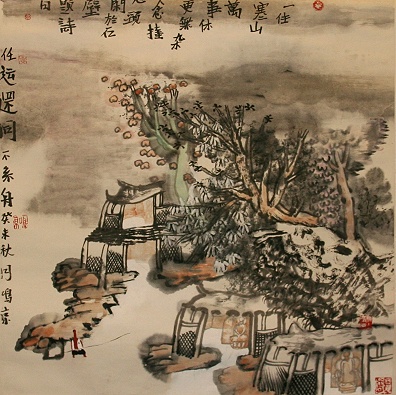 一住
寒山
萬
事休
更無杂
念挂
心頭
閑於石
壁
題詩
句
任運還同不系舟癸未秋鳴